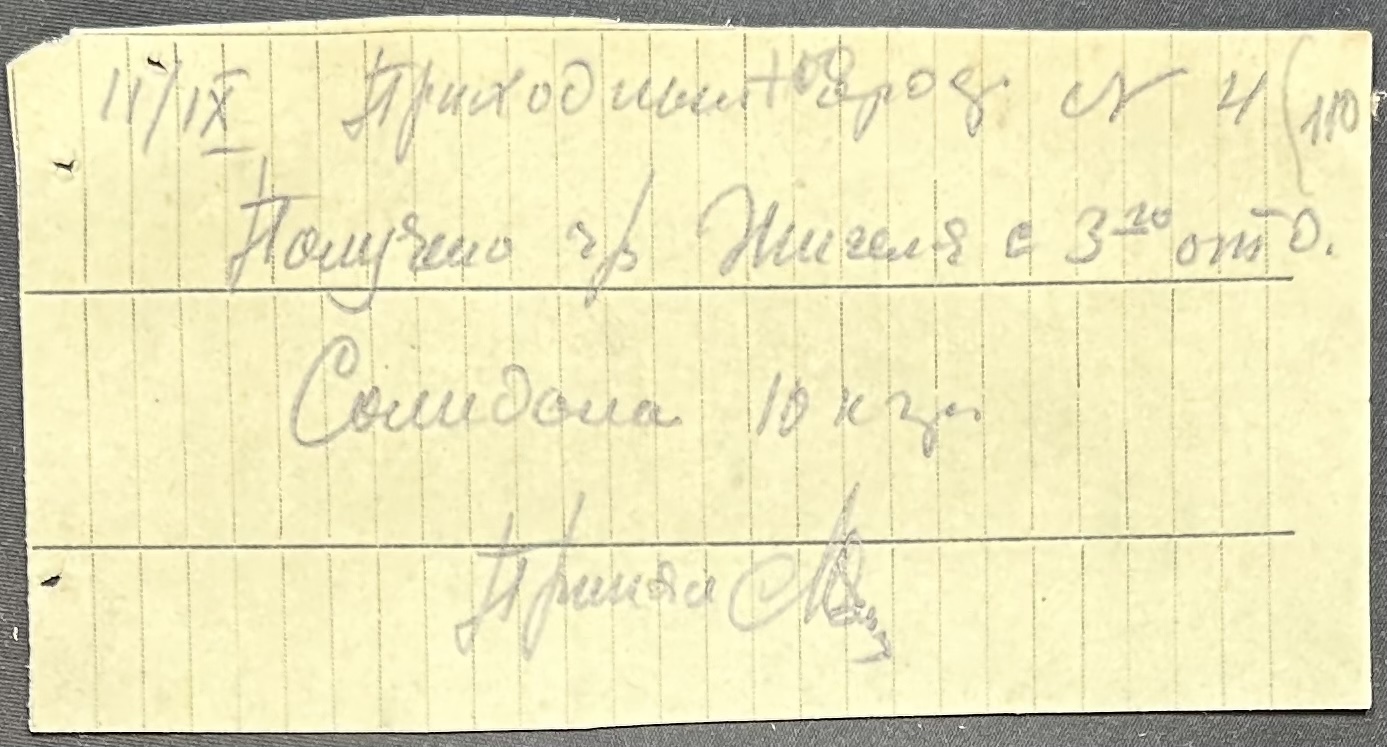 11/IX Приходный ордер № 4 (110
Получено ч/р Жигеля с 3го отд.
Солидола 10 кгр.
Принял